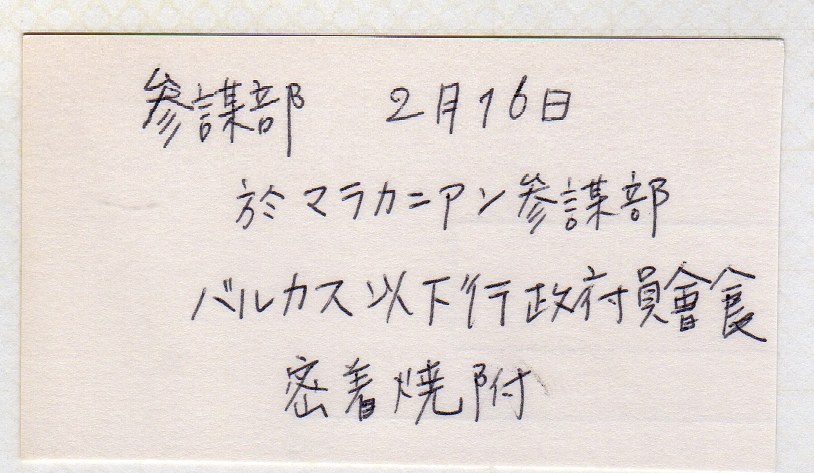 参謀部 2月16日
於マラカニアン参謀部
バルカス以下行政府員會食
密着焼附